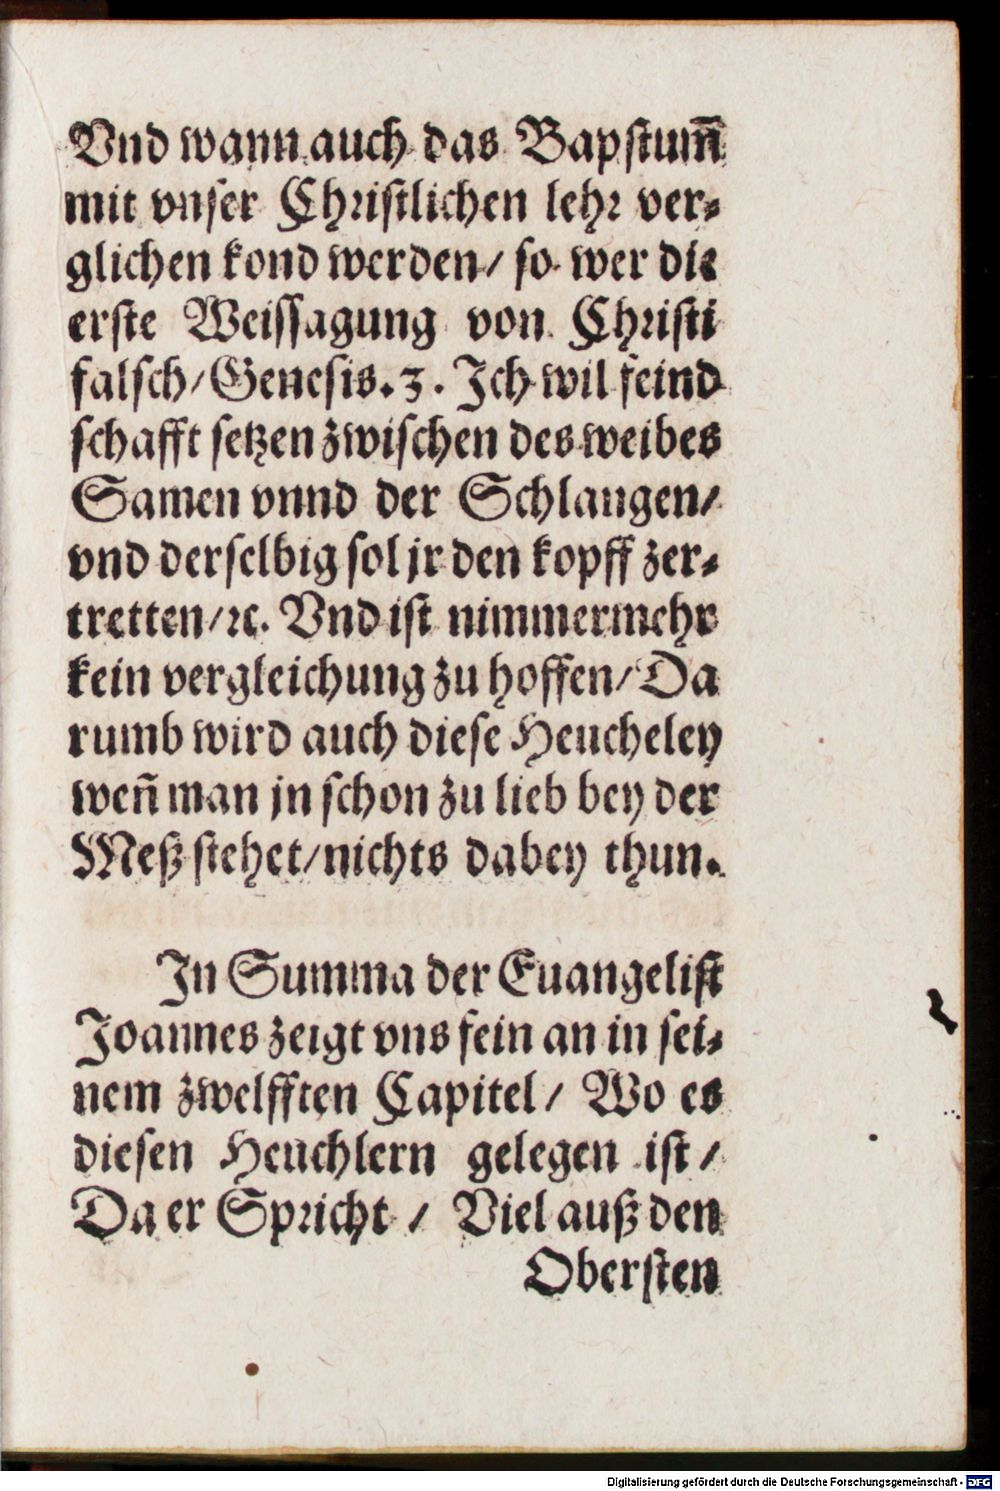 Vnd wann auch das Bapstum̃
mit vnser Christlichen lehr ver⸗
glichen kond werden/ so wer die
erste Weissagung von Christi
falsch/ Genesis. 3. Ich wil feind
schafft setzen zwischen des weibes
Samen vnnd der Schlangen/
vnd derselbig sol jr den kopff zer⸗
tretten/ ꝛc. Vnd ist nimmermehr
kein vergleichung zu hoffen/ Da
rumb wird auch diese Heucheley
weñ man jn schon zu lieb bey der
Meß stehet/ nichts dabey thun.
In Summa der Euangelist
Joannes zeigt vns fein an in sei⸗
nem zwelfften Capitel/ Wo es
diesen Heuchlern gelegen ist/
Da er Spricht/ Viel auß den
Obersten
Digitalisierung gefördert durch die Deutsche Forschungsgemeinschaft - DFG